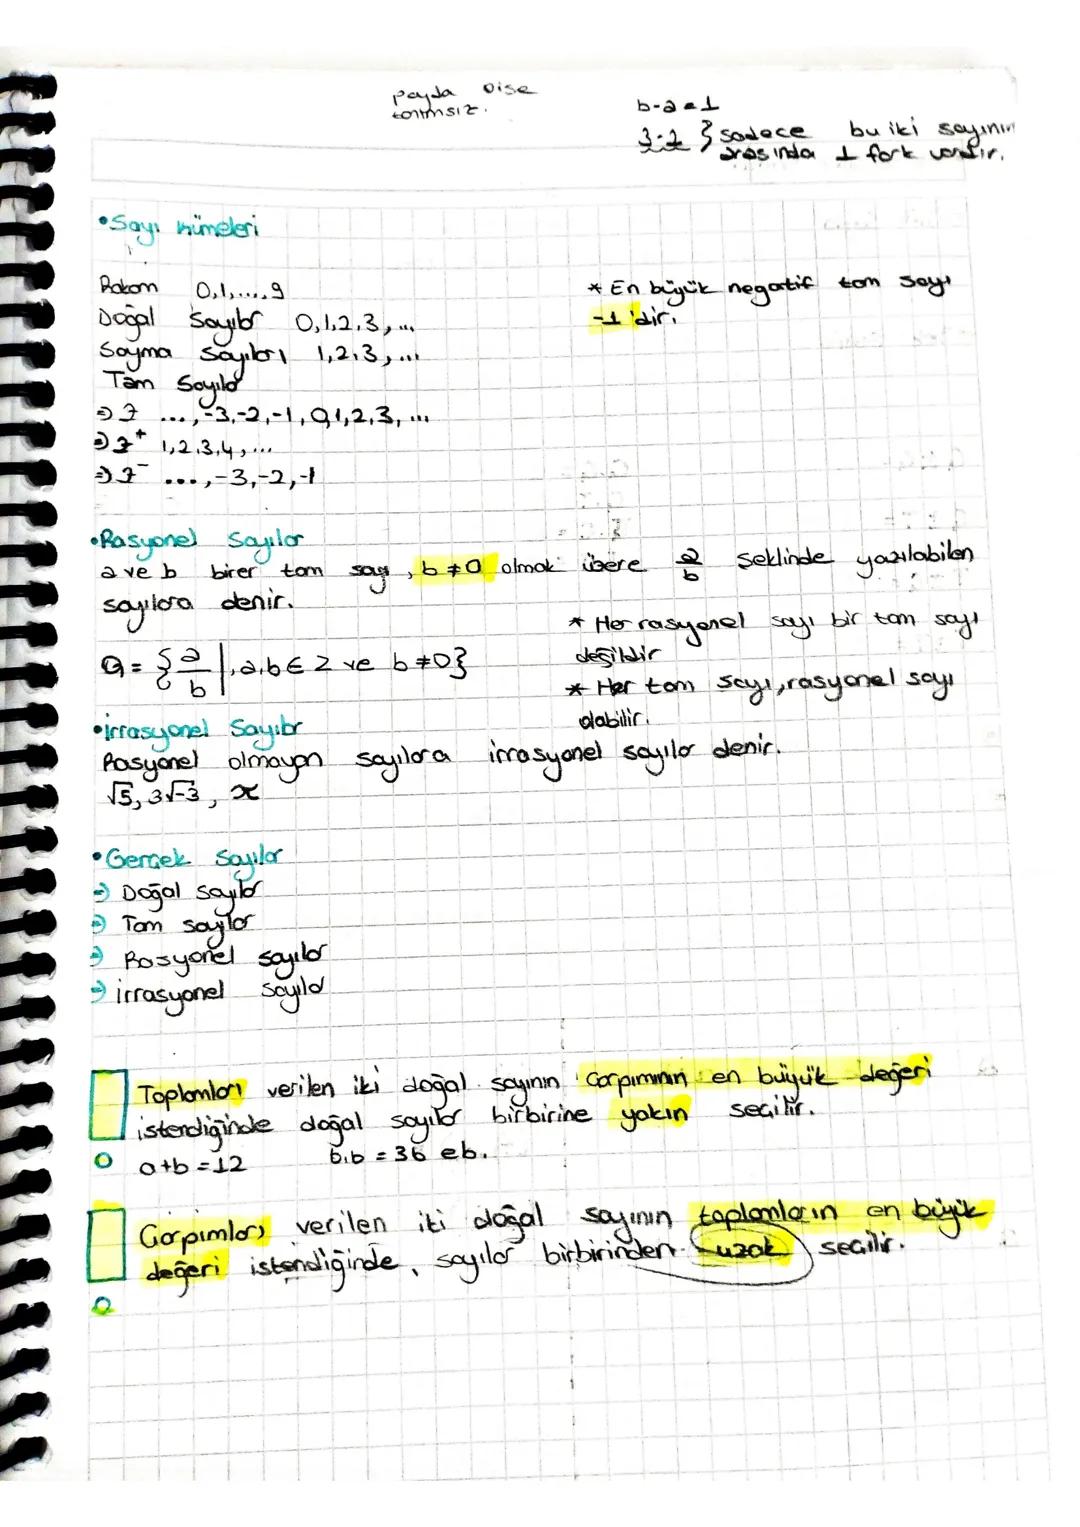 payda 0 ise
tanımsız.
b-a=1
3-2 } sadece bu iki sayının
arasında 1 fark vardır.
•Sayı kümeleri
Rakam 0,1,...,9
* En büyük negatif tam sayı
-1'dir.
Doğal Sayılar 0,1,2,3,...
Sayma Sayıları 1,2,3,...
Tam Sayılar
⇒ Z ...,-3,-2,-1,0,1,2,3,...
⇒ Z⁺ 1,2,3,4,...
⇒ Z⁻ ...,-3,-2,-1
•Rasyonel Sayılar
a ve b birer tam sayı, b≠0 olmak üzere a/b şeklinde yazılabilen
sayılara denir.
* Her rasyonel sayı bir tam sayı
değildir
Q = {a/b |, a,b ∈ Z ve b≠0}
* Her tam sayı, rasyonel sayı
olabilir.
•irrasyonel Sayılar
Rasyonel olmayan sayılara irrasyonel sayılar denir.
√5, 3√-3, π
•Gerçek Sayılar
⇒ Doğal sayılar
⇒ Tam sayılar
⇒ Rasyonel sayılar
⇒ irrasyonel sayılar
Toplamları verilen iki doğal sayının Çarpımının en büyük değeri
istendiğinde doğal sayılar birbirine yakın seçilir.
a+b=12 6.6 = 36 eb.
Çarpımları verilen iki doğal sayının toplamların en büyük
değeri istendiğinde, sayılar birbirinden uzak seçilir.